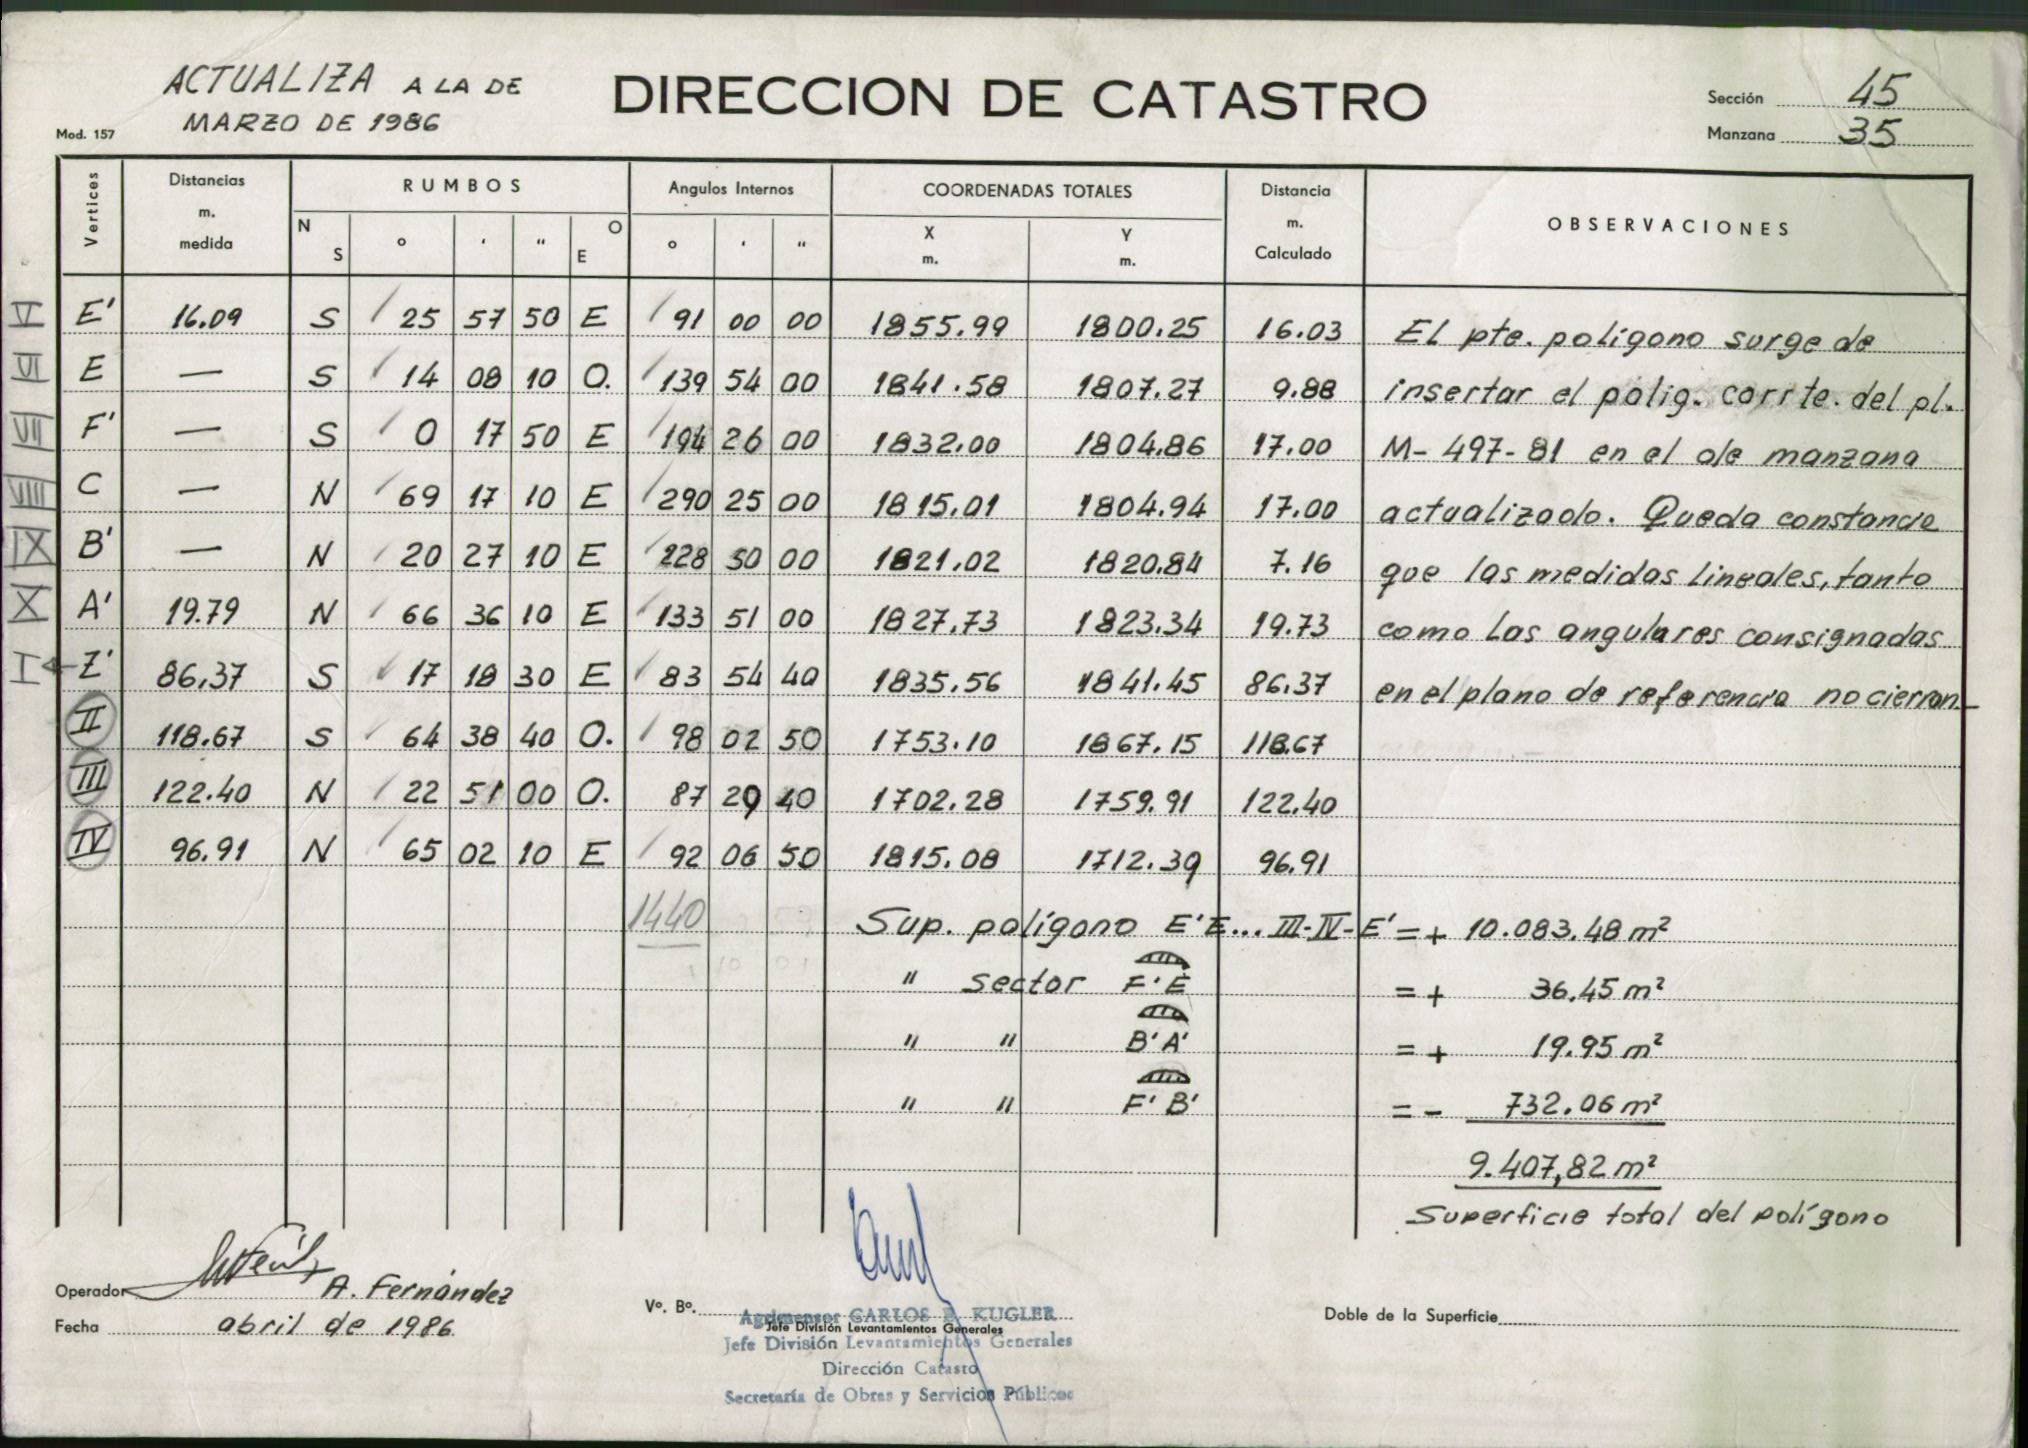 ACTUALIZA A LA DE
MARZO DE 1986
DIRECCION DE CATASTRO
Sección 45
Manzana 35
Mod. 157
Vertices Distancias m. medida RUMBOS N S ° ' " O E Angulos Internos ° ' " COORDENADAS TOTALES X m. Y m. Distancia m. Calculado OBSERVACIONES
V E' 16.09 S 25 57 50 E 91 00 00 1855.99 1800.25 16.03 El pte. polígono surge de
VI E — S 14 08 10 O. 139 54 00 1841.58 1807.27 9.88 insertar el políg. corrte. del pl.
VII F' — S 0 17 50 E 194 26 00 1832.00 1804.86 17.00 M-497-81 en el de manzana
VIII C — N 69 17 10 E 290 25 00 1815.01 1804.94 17.00 actualizado. Queda constancia
IX B' — N 20 27 10 E 228 50 00 1821.02 1820.84 7.16 que las medidas lineales, tanto
X A' 19.79 N 66 36 10 E 133 51 00 1827.73 1823.34 19.73 como las angulares consignadas
I ← Z' 86.37 S 17 18 30 E 83 54 40 1835.56 1841.45 86.37 en el plano de referencia no cierran
II 118.67 S 64 38 40 O. 98 02 50 1753.10 1867.15 118.67
III 122.40 N 22 51 00 O. 87 29 40 1702.28 1759.91 122.40
IV 96.91 N 65 02 10 E 92 06 50 1815.08 1712.39 96.91
1440 Sup. polígono E'E... III-IV-E' = + 10.083.48 m²
" sector F'E = + 36.45 m²
" " B'A' = + 19.95 m²
" " F'B' = - 732.06 m²
9.407,82 m²
Superficie total del polígono
Operador A. Fernández
Fecha abril de 1986
Vº. Bº.
Agrimensor CARLOS KUGLER
Jefe División Levantamientos Generales
Jefe División Levantamientos Generales
Dirección Catasto
Secretaría de Obras y Servicios Públicos
Doble de la Superficie